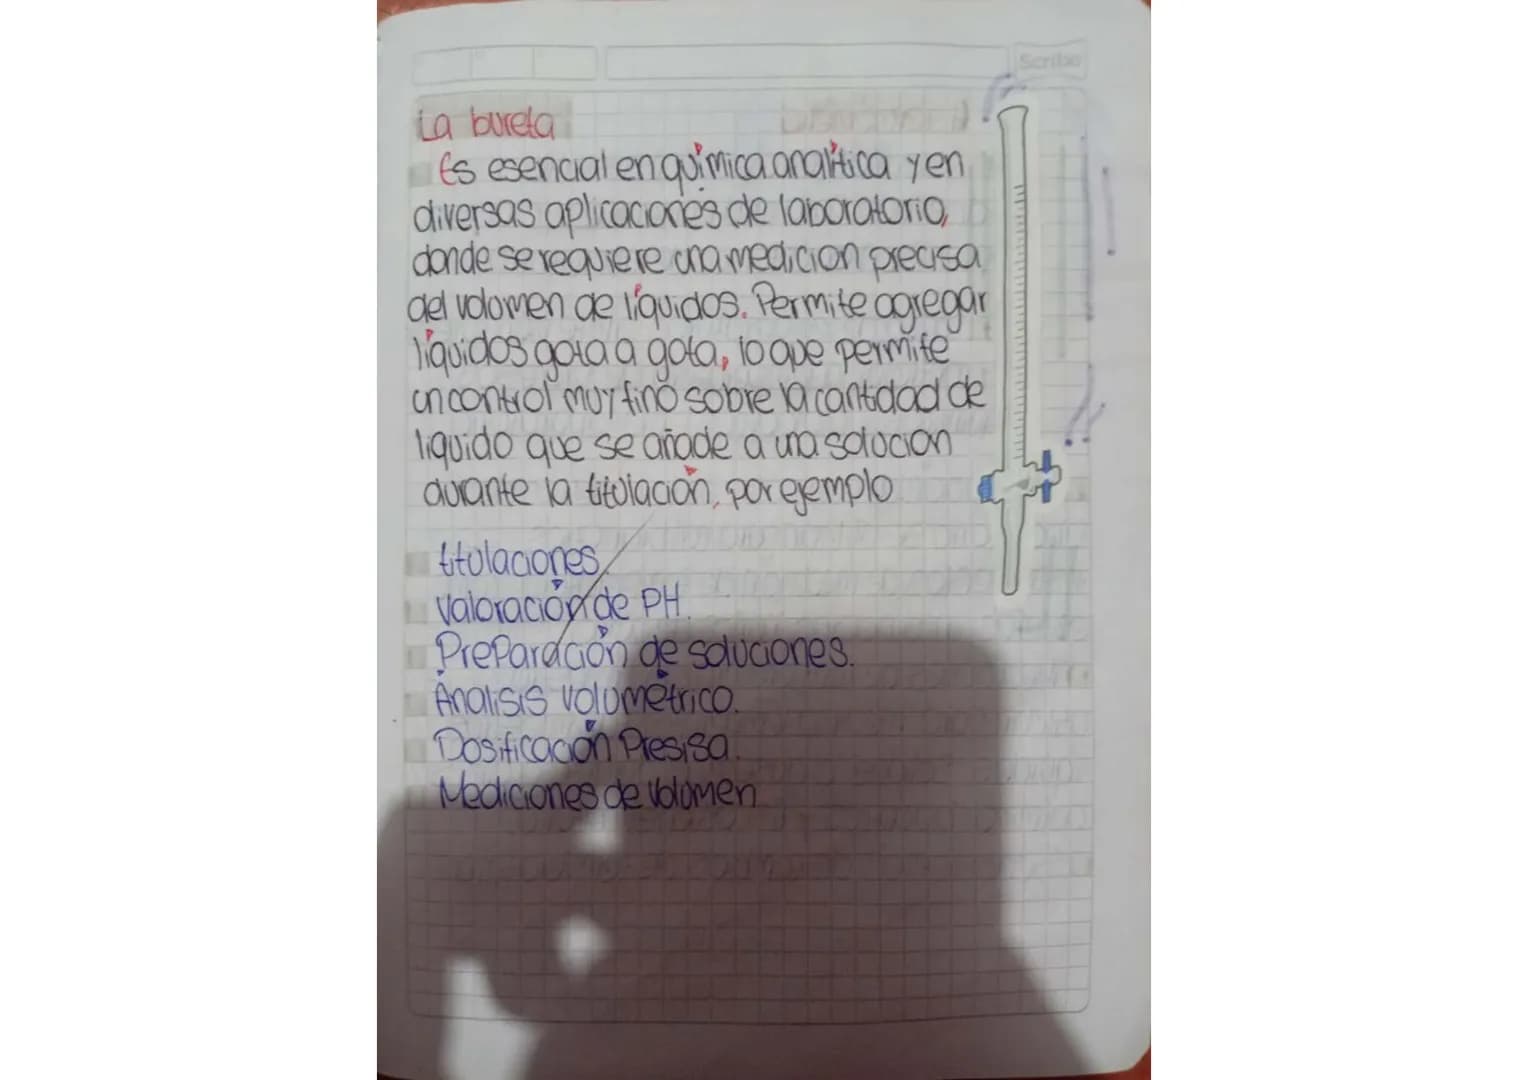 Scribe
La bureta
Es esencial en química analítica y en
diversas aplicaciones de laboratorio,
donde se requiere una medicion precisa
del volumen de líquidos. Permite agregar
líquidos gota a gota, lo que permite
un control muy fino sobre la cantidad de
liquido que se añade a una solucion
durante la titulación, por ejemplo
titulaciones.
Valoración de PH.
Preparación de soluciones.
Análisis volumétrico.
Dosificación Presisa.
Mediciones de volumen